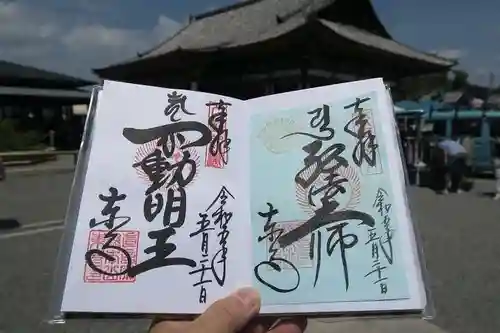 奉拝
弘法大師
東寺
令和五年
五月二十一日
奉拝
不動明王
東寺
令和五年
五月二十一日